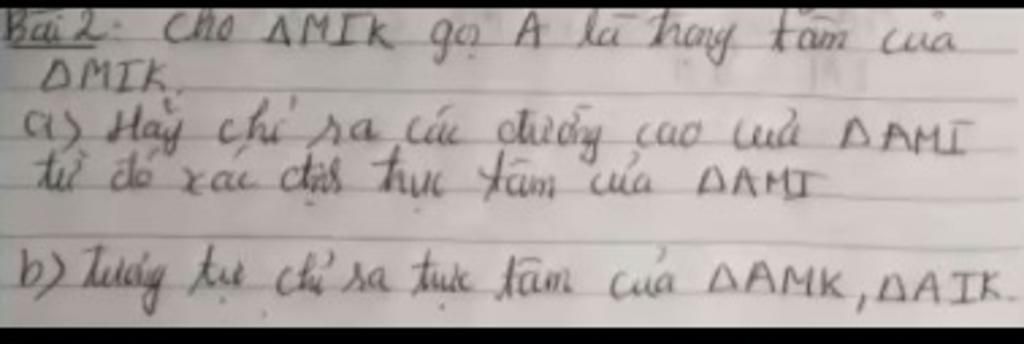 Bài 2: Cho ΔMIK gọi A là trọng tâm của
ΔMIK.
a) Hãy chỉ ra các đường cao của ΔAMI
từ đó xác định trực tâm của ΔAMI
b) Tương tự chỉ ra trực tâm của ΔAMK, ΔAIK.